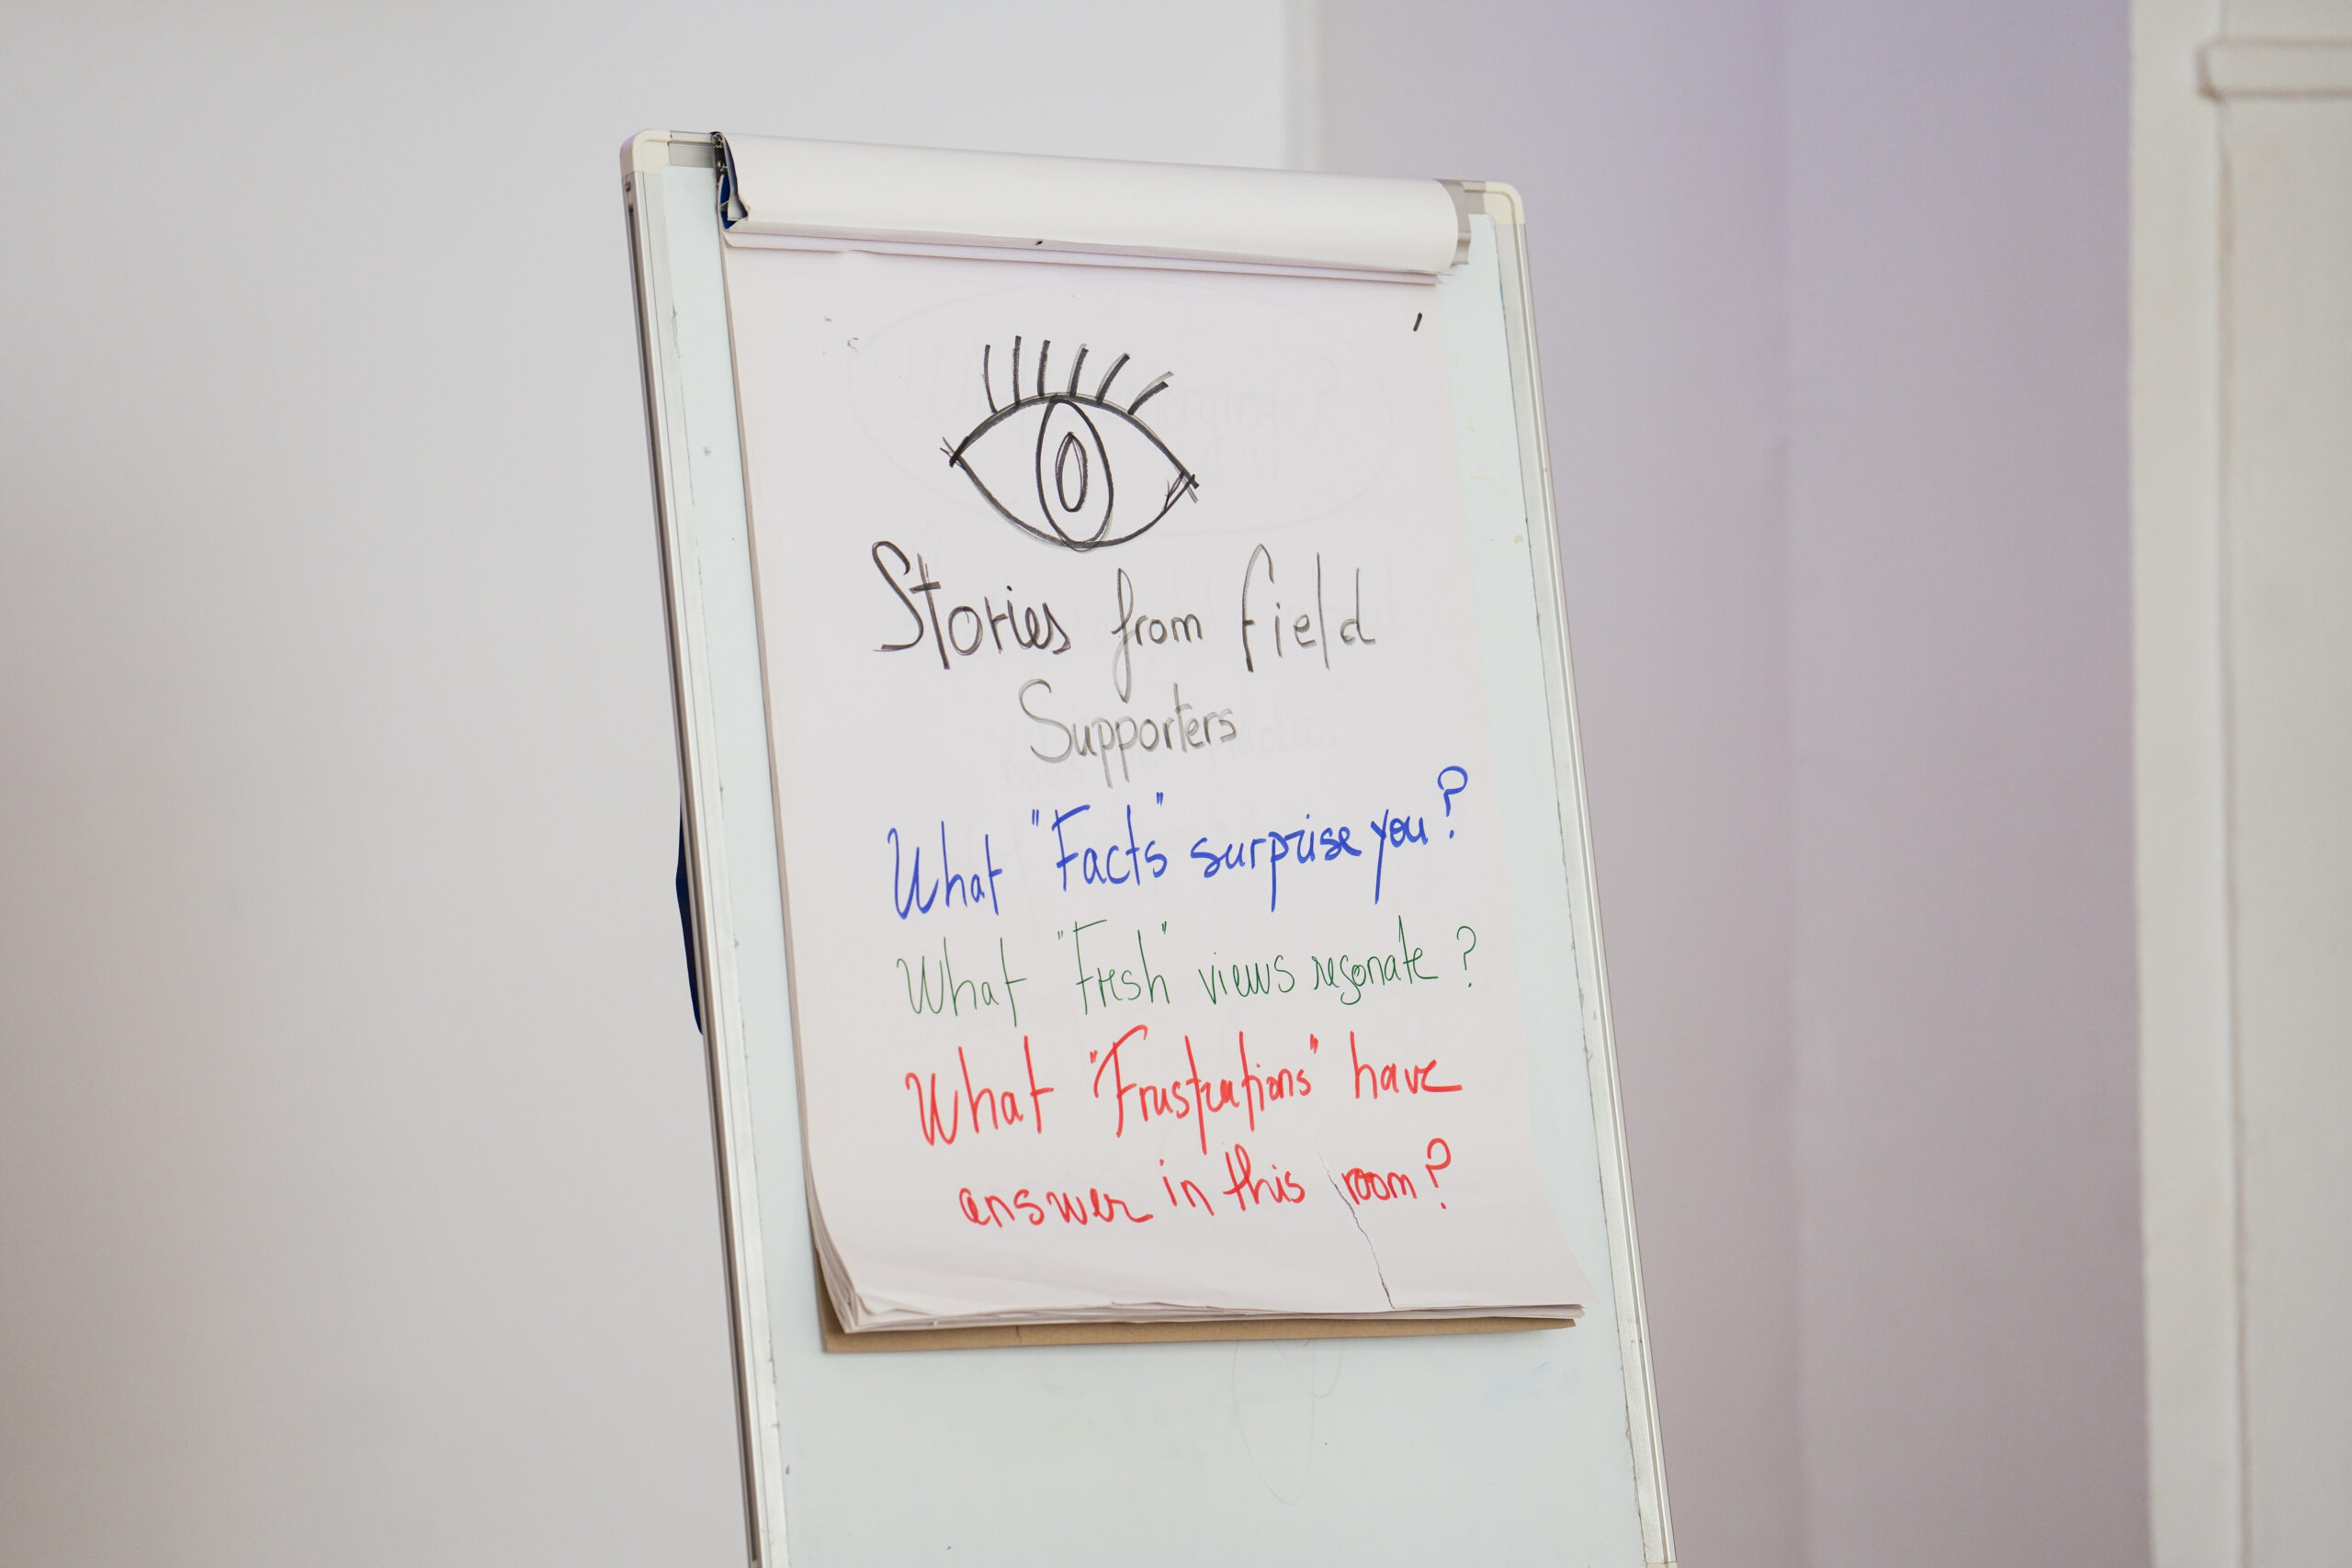 Stories from Field
Supporters
What "Facts" surprise you?
What "Fresh" views resonate?
What "Frustrations" have
answer in this room?